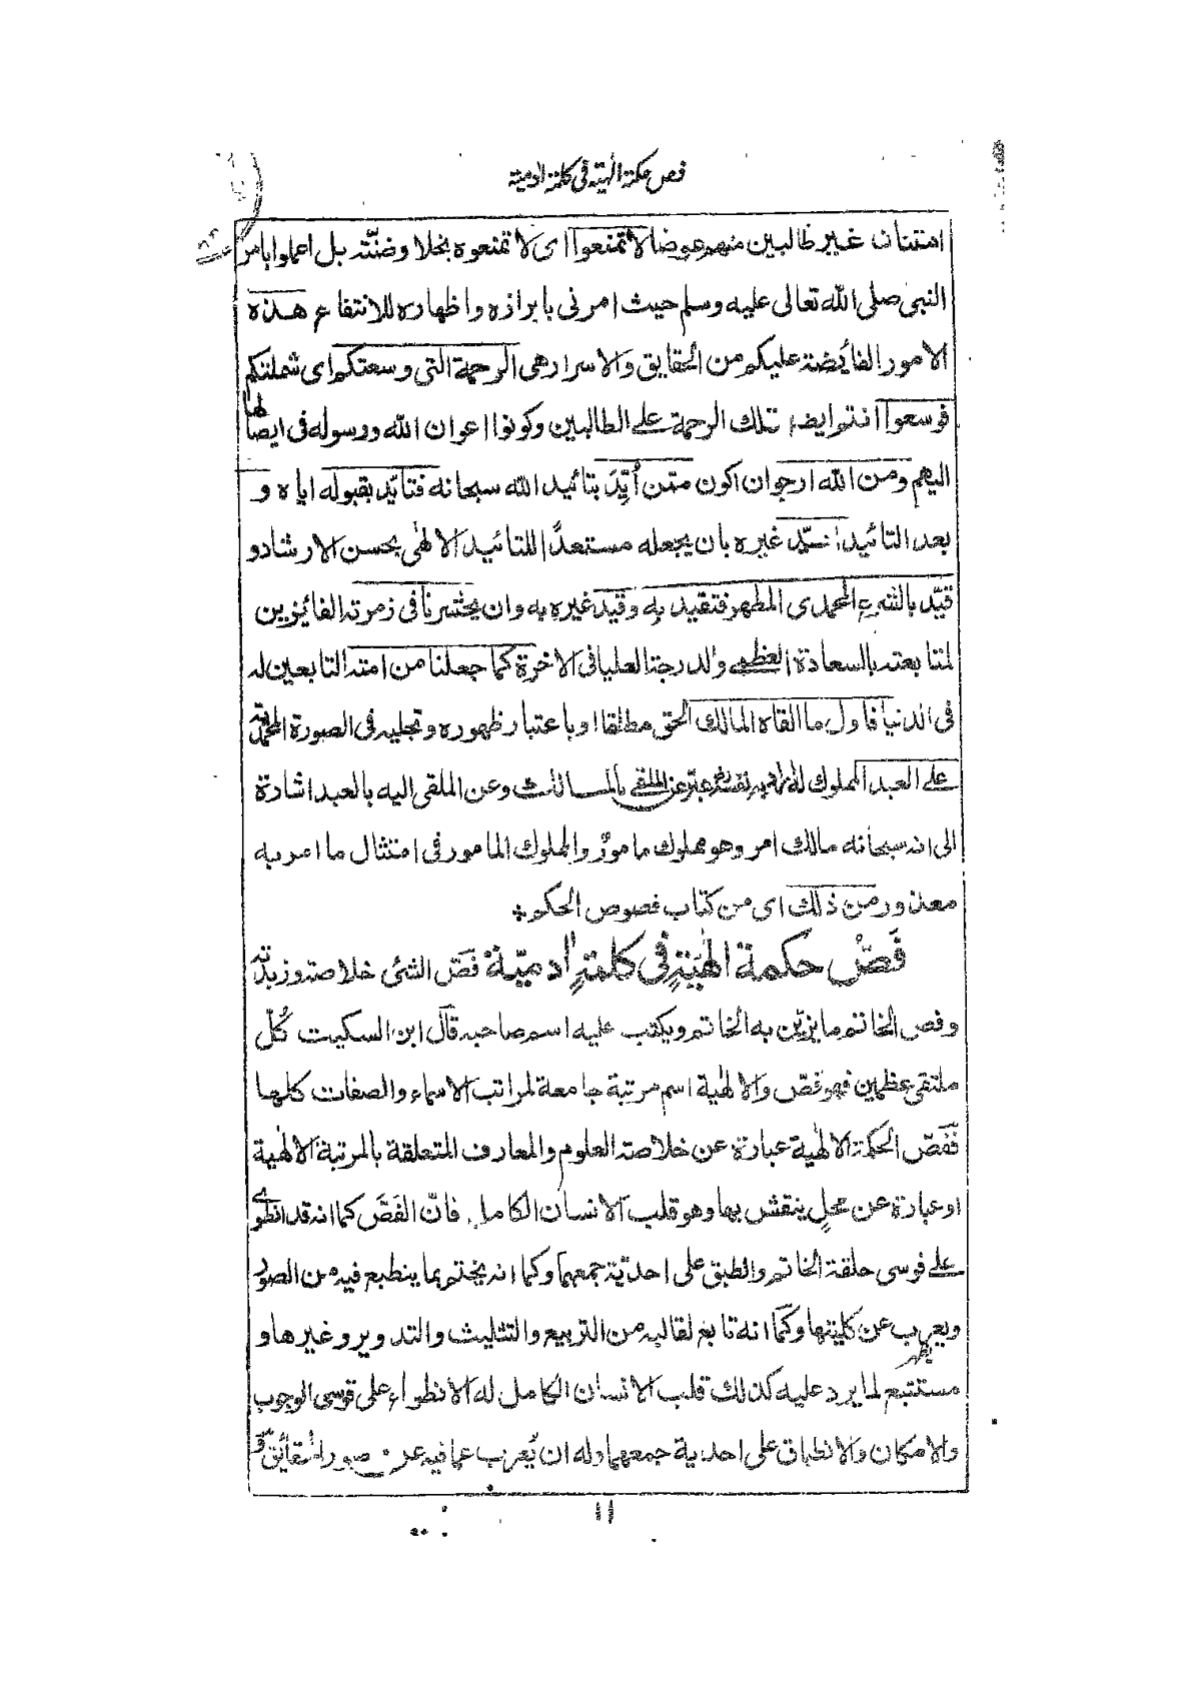 فص حكمة الهية فى كلمة ادمية
امتنان غير طالبين منهم عوضا لا تمنعوا اى لا تمنعوه بخلا وضنّة بل اعملوا بامر
النبى صلى الله تعالى عليه وسلم حيث امرنى بابرازه واظهاره للانتفاع هذه
الامور الفائضة عليكم من الحقايق والاسرار هى الرحمة التى وسعتكم اى شملتكم
فوسعوا انتم ايضا تلك الرحمة على الطالبين وكونوا اعوان الله ورسوله فى ايصالها
اليهم ومن الله ارجو ان اكون ممّن اُيِّدَ بتائيد الله سبحانه فتايّد بقبوله اياه و
بعد التائيد ايّد غيره بان يجعله مستعدًّا للتائيد الالهٰى بحسن الارشاد و
قيّد بالشرع المحمدى المطهر فتقيد به وقيد غيره به وان يحشرنا فى زمرته الفائزين
لمتابعته بالسعادة العظمى والدرجة العليا فى الاخرة كما جعلنا من امته التابعين له
فى الدنيا فاول ما القاه المالك الحق مطلقا او باعتبار ظهوره وتجليه فى الصورة المحمّديّة
على العبد المملوك له عبّر عن الملقى بالمالك وعن الملقى اليه بالعبد اشارة
الى انه سبحانه مالك امر وهو مملوك مامورٌ والمملوك المامور فى امتثال ما امر به
معذور من ذلك اى من كتاب فصوص الحكم
فَصّ حكمة الٰهيّةٍ فى كلمةٍ ادميّة فصّ الشئ خلاصته وزبدته
وفص الخاتم ما يزيّن به الخاتم ويكتب عليه اسم صاحبه قال ابن السكيت كُلّ
ملتقى عظمين فهو فصّ والالهٰية اسم مرتبة جامعة لمراتب الاسماء والصفات كلها
ففصّ الحكمة الالهٰية عبارة عن خلاصة العلوم والمعارف المتعلقة بالمرتبة الالهٰية
او عبارة عن محلٍ ينقش بها وهو قلب الانسان الكامل فانّ الفصّ كما انه قد انطوى
على قوسى حلقة الخاتم وانطبق على احديّة جمعهما وكما انه يختم بما ينطبع فيه من الصور
ويعرب عن كليتها وكما انه تابع لقالبه من التربيع والتثليث والتدوير وغيرها و
يظهر
مستتبع لما يرد عليه كذلك قلب الانسان الكامل له الانطواء على قوسى الوجوب
والامكان والانطباق على احدية جمعهما وله ان يُعرب عما فيه من صور الحقائق
١١